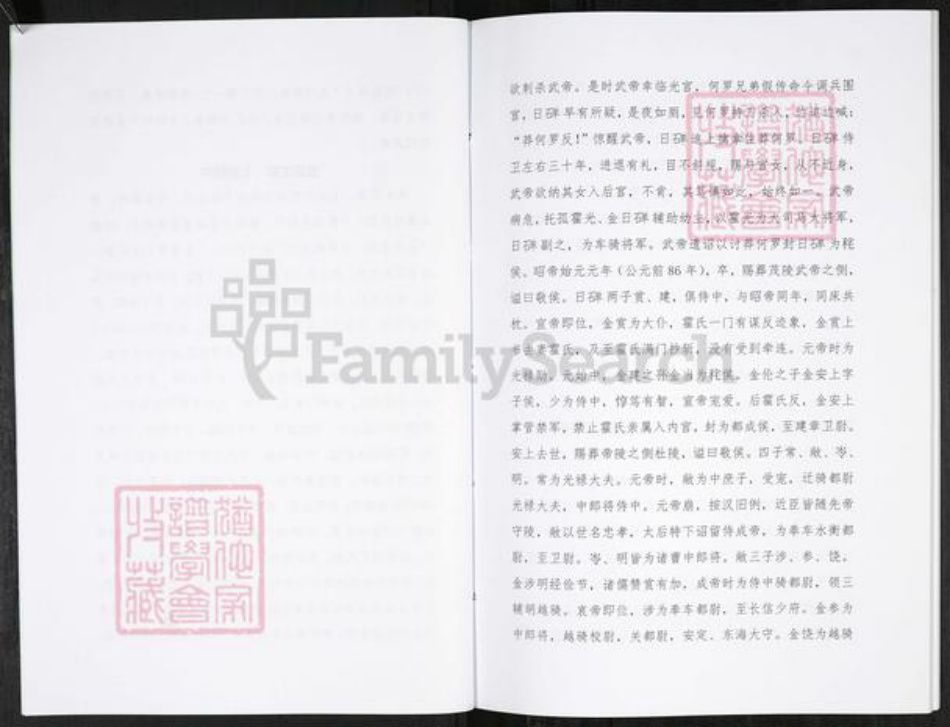 欲刺杀武帝。是时武帝幸临光宫，何罗兄弟假传命令调兵围
宫，日磾早有所疑，是夜如厕，见何罗持刀杀入，边追边喊：
“莽何罗反！”惊醒武帝，日磾追上擒拿住莽何罗。日磾侍
卫左右三十年，进退有礼，目不斜视，赐与宫女，从不近身，
武帝欲纳其女入后宫，不肯，其笃慎如此，始终如一。武帝
病危，托孤霍光、金日磾辅助幼主，以霍光为大司马大将军，
日磾副之，为车骑将军。武帝遗诏以讨莽何罗封日磾为秺
侯。昭帝始元元年（公元前86年），卒，赐葬茂陵武帝之侧，
谥曰敬侯。日磾两子赏、建，俱侍中，与昭帝同年，同床共
枕。宣帝即位，金赏为大仆，霍氏一门有谋反迹象，金赏上
书去妻霍氏，及至霍氏满门抄斩，没有受到牵连。元帝时为
光禄勋。元始中，金建之孙金当为秺侯。金伦之子金安上字
子侯，少为侍中，惇笃有智，宣帝宠爱。后霍氏反，金安上
掌管禁军，禁止霍氏亲属入内宫，封为都成侯，至建章卫尉。
安上去世，赐葬帝陵之侧杜陵，谥曰敬侯。四子常、敞、岑、
明。常为光禄大夫。元帝时，敞为中庶子，受宠，迁骑都尉
光禄大夫，中郎将侍中。元帝崩，按汉旧例，近臣皆随先帝
守陵，敞以世名忠孝，太后特下诏留侍成帝，为奉车水衡都
尉，至卫尉。岑、明皆为诸曹中郎将。敞三子涉、参、饶。
金涉明经俭节，诸儒赞赏有加，成帝时为侍中骑都尉，领三
辅胡越骑。哀帝即位，涉为奉车都尉，至长信少府。金参为
中郎将，越骑校尉，关都尉，安定、东海大守。金饶为越骑
FamilySearch